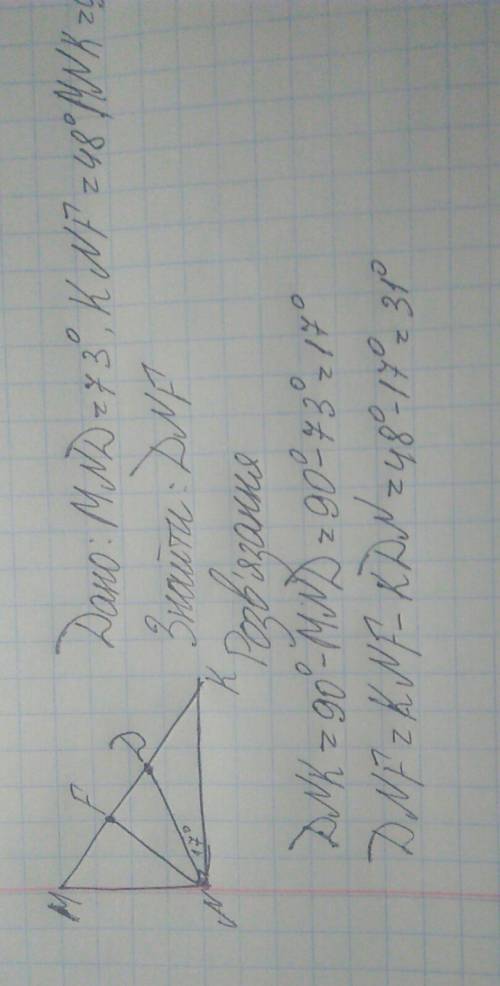 Дано: MND = 73°, KNF = 48°, MNK =
Знайти: DNF
Розв'язання
DNK = 90° - MND = 90° - 73° = 17°
DNF = KNF - KDN = 48° - 17° = 31°
M
F
D
K
N
17°